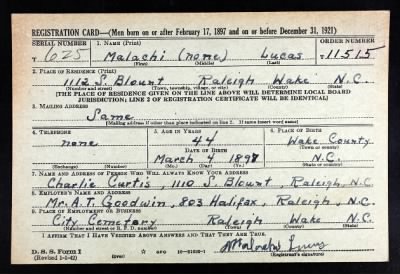 REGISTRATION CARD—(Men born on or after February 17, 1897 and on or before December 31, 1921)
SERIAL NUMBER 1. NAME (Print) ORDER NUMBER
T 625 Malachi (none) Lucas T 11515
(First) (Middle) (Last)
2. PLACE OF RESIDENCE (Print)
1112 S. Blount Raleigh Wake N.C.
(Number and street) (Town, township, village, or city) (County) (State)
[THE PLACE OF RESIDENCE GIVEN ON THE LINE ABOVE WILL DETERMINE LOCAL BOARD
JURISDICTION; LINE 2 OF REGISTRATION CERTIFICATE WILL BE IDENTICAL]
3. MAILING ADDRESS
Same
[Mailing address if other than place indicated on line 2. If same insert word same]
4. TELEPHONE 5. AGE IN YEARS 6. PLACE OF BIRTH
none 44 Wake County
DATE OF BIRTH (Town or county)
March 4 1897 N.C.
(Exchange) (Number) (Mo.) (Day) (Yr.) (State or country)
7. NAME AND ADDRESS OF PERSON WHO WILL ALWAYS KNOW YOUR ADDRESS
Charlie Curtis, 1110 S. Blount, Raleigh, N.C.
8. EMPLOYER'S NAME AND ADDRESS
Mr. A.T. Goodwin, 803 Halifax, Raleigh, N.C.
9. PLACE OF EMPLOYMENT OR BUSINESS
City Cemetery Raleigh Wake N.C.
(Number and street or R. F. D. number) (Town) (County) (State)
I AFFIRM THAT I HAVE VERIFIED ABOVE ANSWERS AND THAT THEY ARE TRUE.
D. S. S. Form 1
(Revised 1-1-42) (over)
(Registrant's signature)